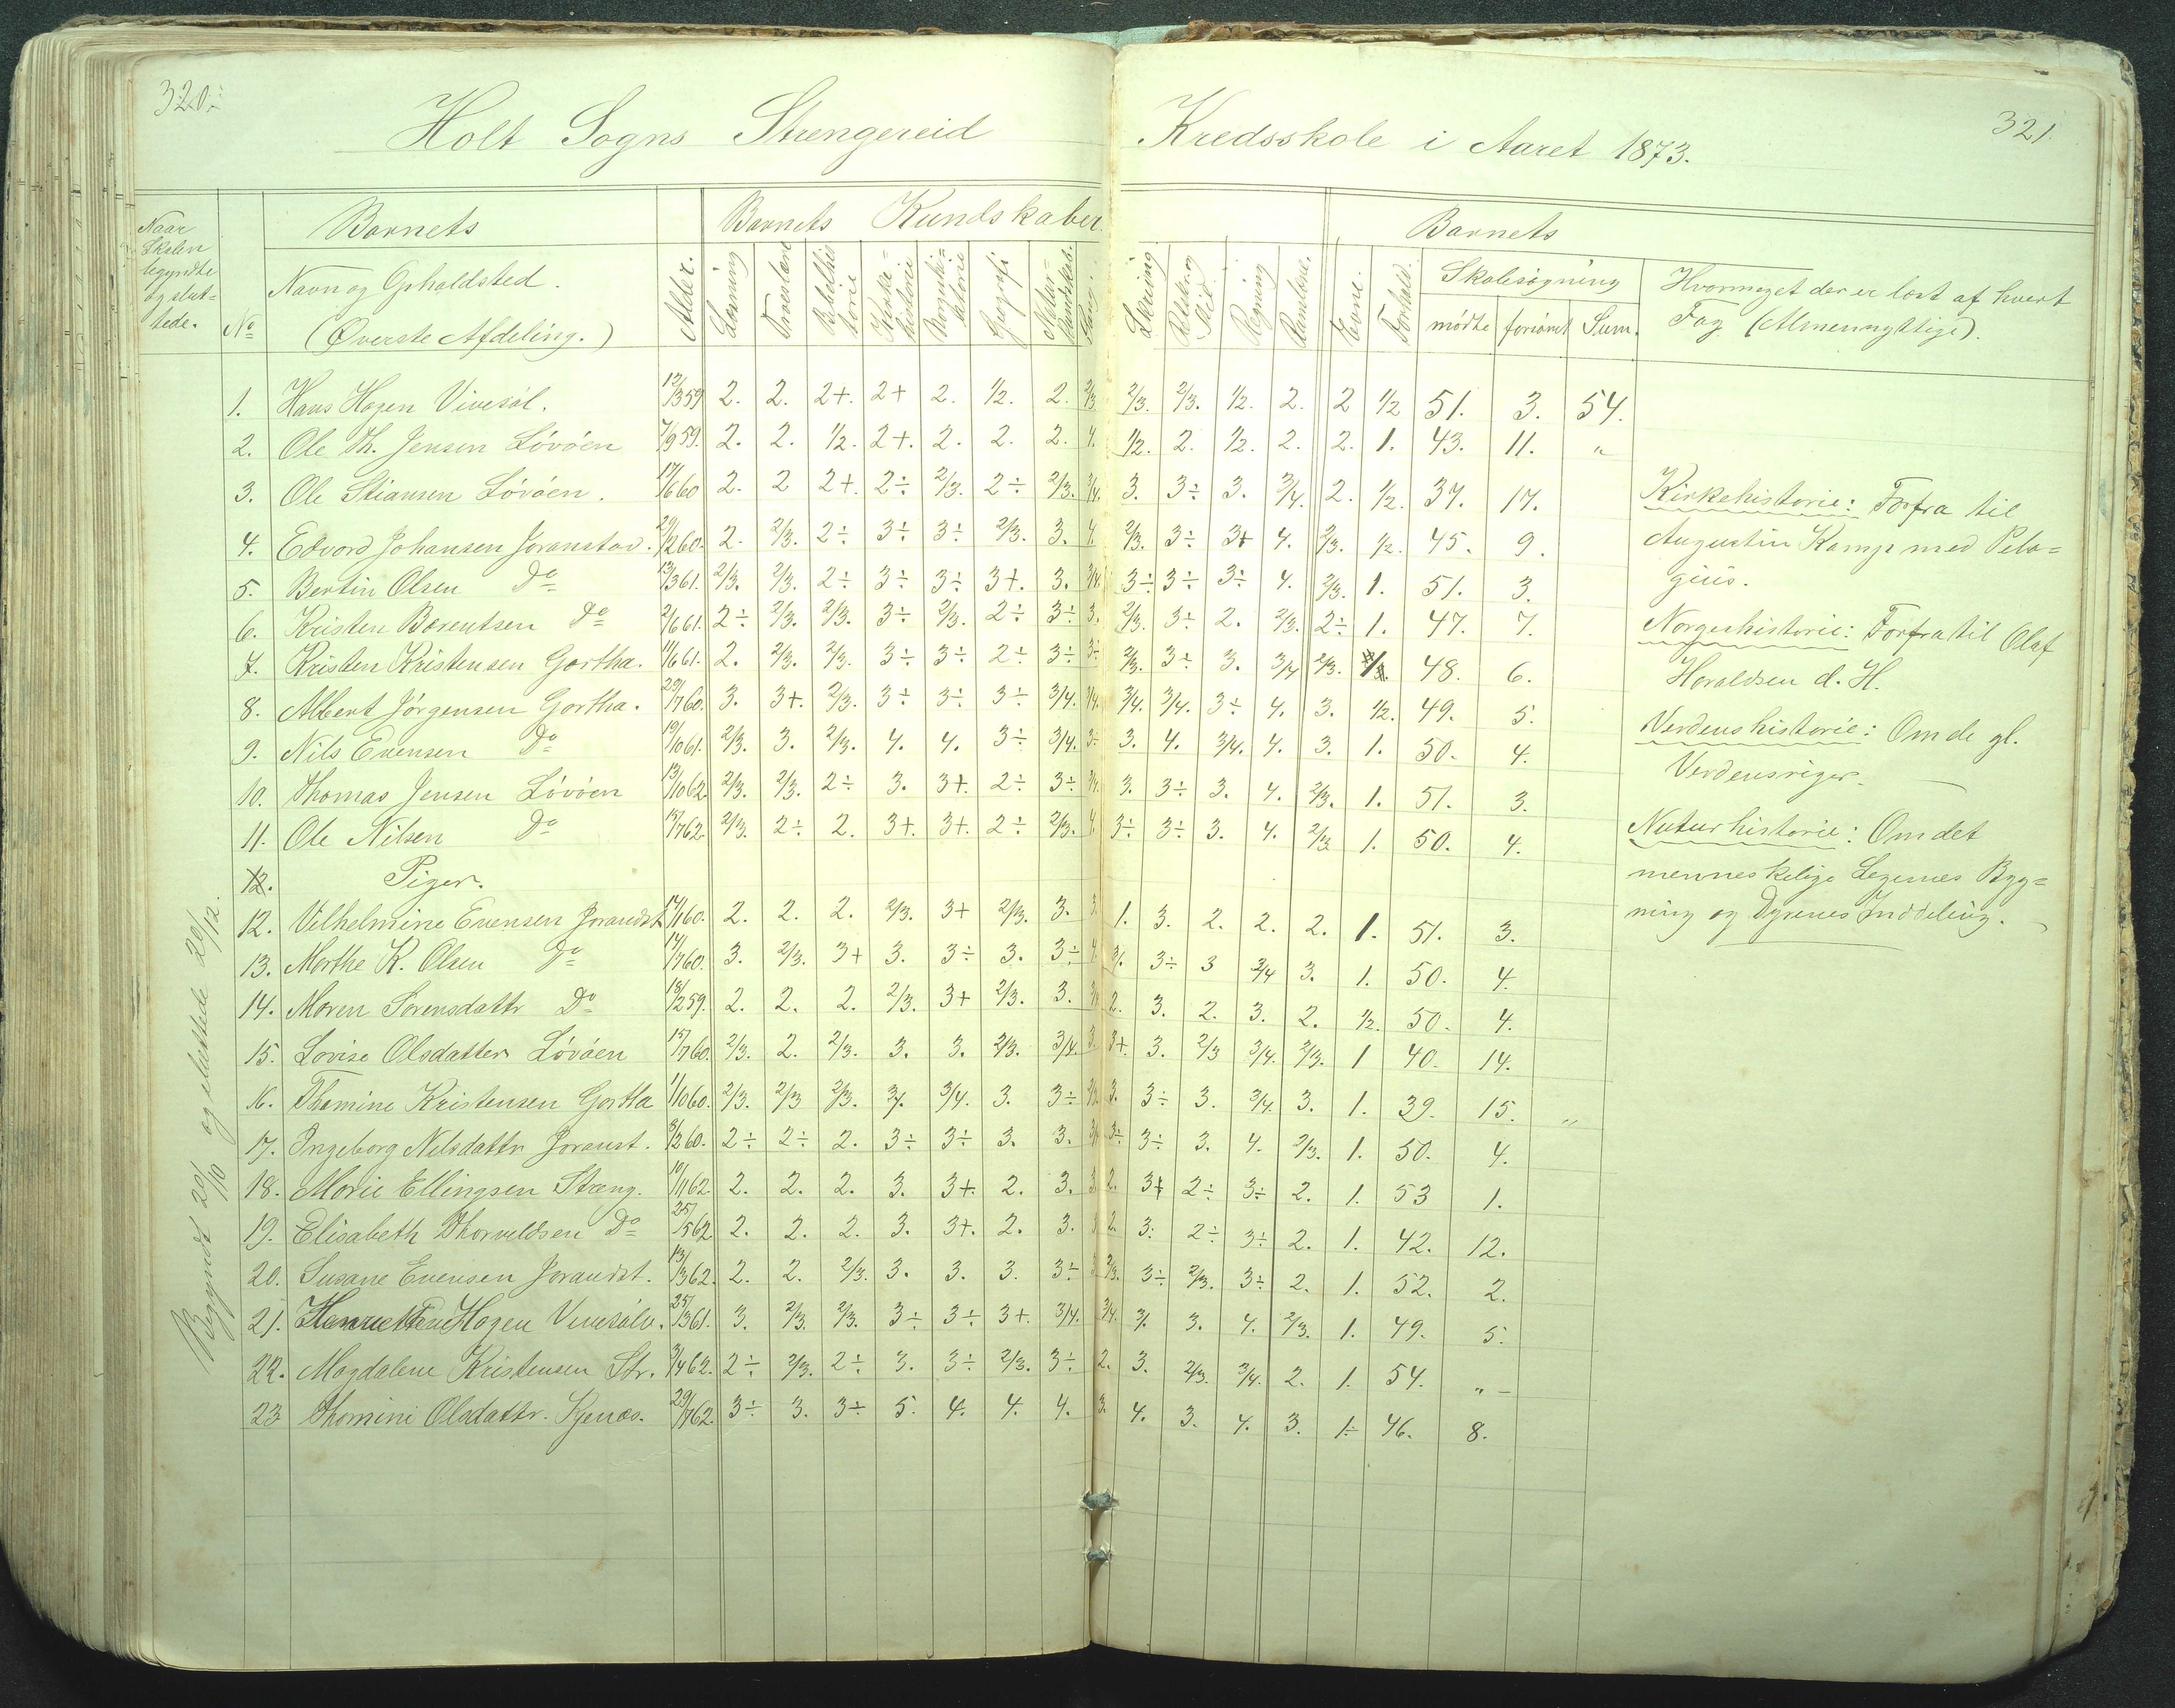 320.
321.
Holt Sogns Strengereid Kredsskole i Aaret 1873.
Naar Skolen begyndte og sluttede.
No
Barnets
Navn og Opholdsted.
(Øverste Afdeling.)
Alder.
Barnets Kundskaber
Læsning
Troeslære
Bibelhistorie
Kirkehistorie
Norgeshistorie
Geografi
Naturkundskab.
Sang.
Skrivning
Retskr. og Stil.
Regning
Barnets
Evne.
Forhold.
Skolesøgning
mødte forsømt Sum.
Hvormeget der er læst af hvert
Fag (Almennyttige).
1. Hans Hagen Vivesøl. 12/3 59 2. 2. 2+. 2+ 2. 1/2. 2. 2/3 2/3. 2/3. 1/2. 2. 2 1/2 51. 3. 54.
2. Ole Th. Jensen Løvøen 7/9 59. 2. 2. 1/2. 2+. 2. 2. 2. 4. 1/2. 2. 1/2. 2. 2. 1. 43. 11. "
3. Ole Stiansen Løvøen. 17/6 60 2. 2 2+. 2÷ 2/3. 2÷ 2/3. 3/4. 3. 3÷ 3. 3/4. 2. 1/2. 37. 17.
4. Edvard Johansen Joranstad. 29/12 60. 2. 2/3. 2÷ 3÷ 3÷ 2/3. 3. 4. 2/3. 3÷ 3+ 4. 2/3. 1/2. 45. 9.
5. Bertin Olsen Do 13/3 61. 2/3. 2/3. 2÷ 3÷ 3÷ 3+. 3. 3/4. 3÷ 3÷ 3÷ 4. 2/3. 1. 51. 3.
6. Kristen Barentsen Do 2/6 61. 2÷ 2/3. 2/3. 3÷ 2/3. 2÷ 3÷ 3. 2/3. 3÷ 2. 2/3. 2÷ 1. 47. 7.
7. Kristen Kristensen Gartha. 11/6 61. 2. 2/3. 2/3. 3÷ 3÷ 2÷ 3÷ 3÷ 2/3. 3÷ 3. 3/4 2/3. 48. 6.
8. Albert Jørgensen Gartha. 29/7 60. 3. 3+. 2/3. 3÷ 3÷ 3÷ 3/4. 3/4. 3/4. 3/4. 3÷ 4. 3. 1/2. 49. 5.
9. Nils Evensen Do 19/10 61. 2/3. 3. 2/3. 4. 4. 3÷ 3/4. 3÷ 3. 4. 3/4. 4. 3. 1. 50. 4.
10. Thomas Jensen Løvøen 13/10 62. 2/3. 2/3. 2÷ 3. 3+. 2÷ 3÷ 3/4. 3. 3÷ 3. 4. 2/3. 1. 51. 3.
11. Ole Nilsen Do 15/7 62. 2/3. 2÷ 2. 3+. 3+. 2÷ 2/3. 4. 3÷ 3÷ 3. 4. 2/3 1. 50. 4.
12. Piger.
12. Vilhelmine Evensen Jorandst. 17/1 60. 2. 2. 2. 2/3. 3+ 2/3. 3. 3. 1. 3. 2. 2. 2. 1. 51. 3.
13. Marthe K. Olsen Do 17/7 60. 3. 2/3. 3+ 3. 3÷ 3. 3÷ 4. 3÷ 3 3/4 3. 1. 50. 4.
14. Maren Sørensdattr Do 18/2 59. 2. 2. 2. 2/3. 3+ 2/3. 3. 3/4 2. 3. 2. 3. 2. 1/2. 50. 4.
15. Lovise Olsdatter Løvøen 15/7 60. 2/3. 2. 2/3. 3. 3. 2/3. 3/4. 3. 3+. 3. 2/3 3/4. 2/3. 1 40. 14.
16. Thomine Kristensen Gartha 1/10 60. 2/3. 2/3 2/3. 3/4. 3. 3÷ 3. 3÷ 3. 3/4. 3. 1. 39. 15. "
17. Ingeborg Nilsdattr Joranst. 8/2 60. 2÷ 2÷ 2. 3÷ 3÷ 3. 3. 3/4 3÷ 3÷ 3. 4. 2/3. 1. 50. 4.
18. Marie Ellingsen Stræng. 10/11 62. 2. 2. 2. 3. 3+. 2. 3. 3. 2. 3+ 2÷ 3÷ 2. 1. 53 1.
19. Elisabeth Thorvaldsen Do 25/5 62. 2. 2. 2. 3. 3+. 2. 3. 3 2. 3. 2÷ 3÷ 2. 1. 42. 12.
20. Susane Evensen Jorandst. 13/3 62. 2. 2. 2/3. 3. 3. 3. 3÷ 3 2/3. 3÷ 2/3. 3÷ 2. 1. 52. 2.
21. Hagen Vivesølv. 25/3 61. 3. 2/3. 2/3. 3÷ 3÷ 3+. 3/4. 3/4. 3. 4. 2/3. 1. 49. 5.
22. Magdalene Kristensen Str. 3/4 62. 2÷ 2/3. 2÷ 3. 3÷ 2/3. 3÷ 2. 3. 2/3. 3/4. 2. 1. 54. " –
23 Thomine Olsdattr. Kjenæs. 29/7 62. 3÷ 3. 3÷ 5. 4. 4. 4. 3. 4. 3. 4. 3. 1÷ 46. 8.
Begyndt 20/10 og sluttede 20/12.
Kirkehistorie: Forfra til
Augustin Kamp med Pela=
giüs.
Norgeshistorie: Forfra til Olaf
Haraldsen d. H.
Verdenshistorie: Om de gl.
Verdensriger.
Naturhistorie: Om det
menneskelige Legemes Byg=
ning og Dyrenes Inddeling.